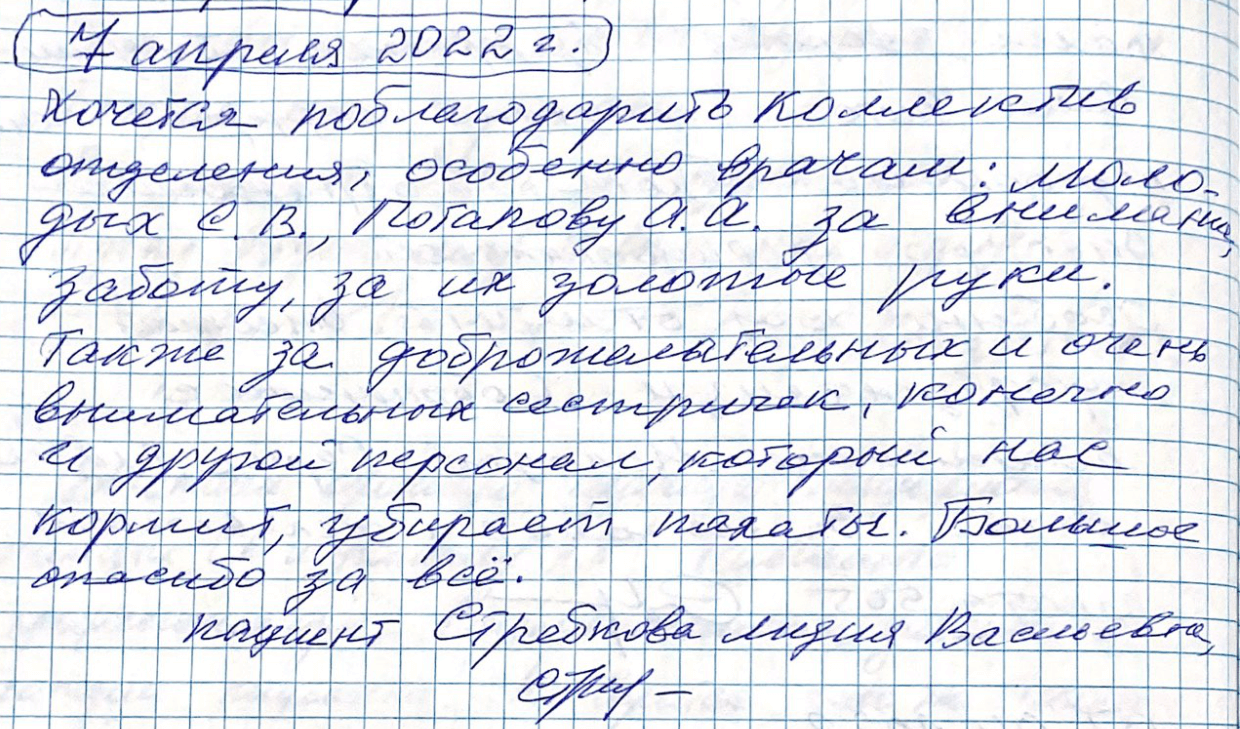 7 апреля 2022 г.
Хочется поблагодарить коллектив
отделения, особенно врачам: Моло-
дых С.В., Потапову А.А. за внимание,
заботу, за их золотые руки.
Также за доброжелательных и очень
внимательных сестричек, конечно
и другой персонал, который нас
кормит, убирает палаты. Большое
спасибо за всё.
пациент Стребкова Лидия Васильевна,